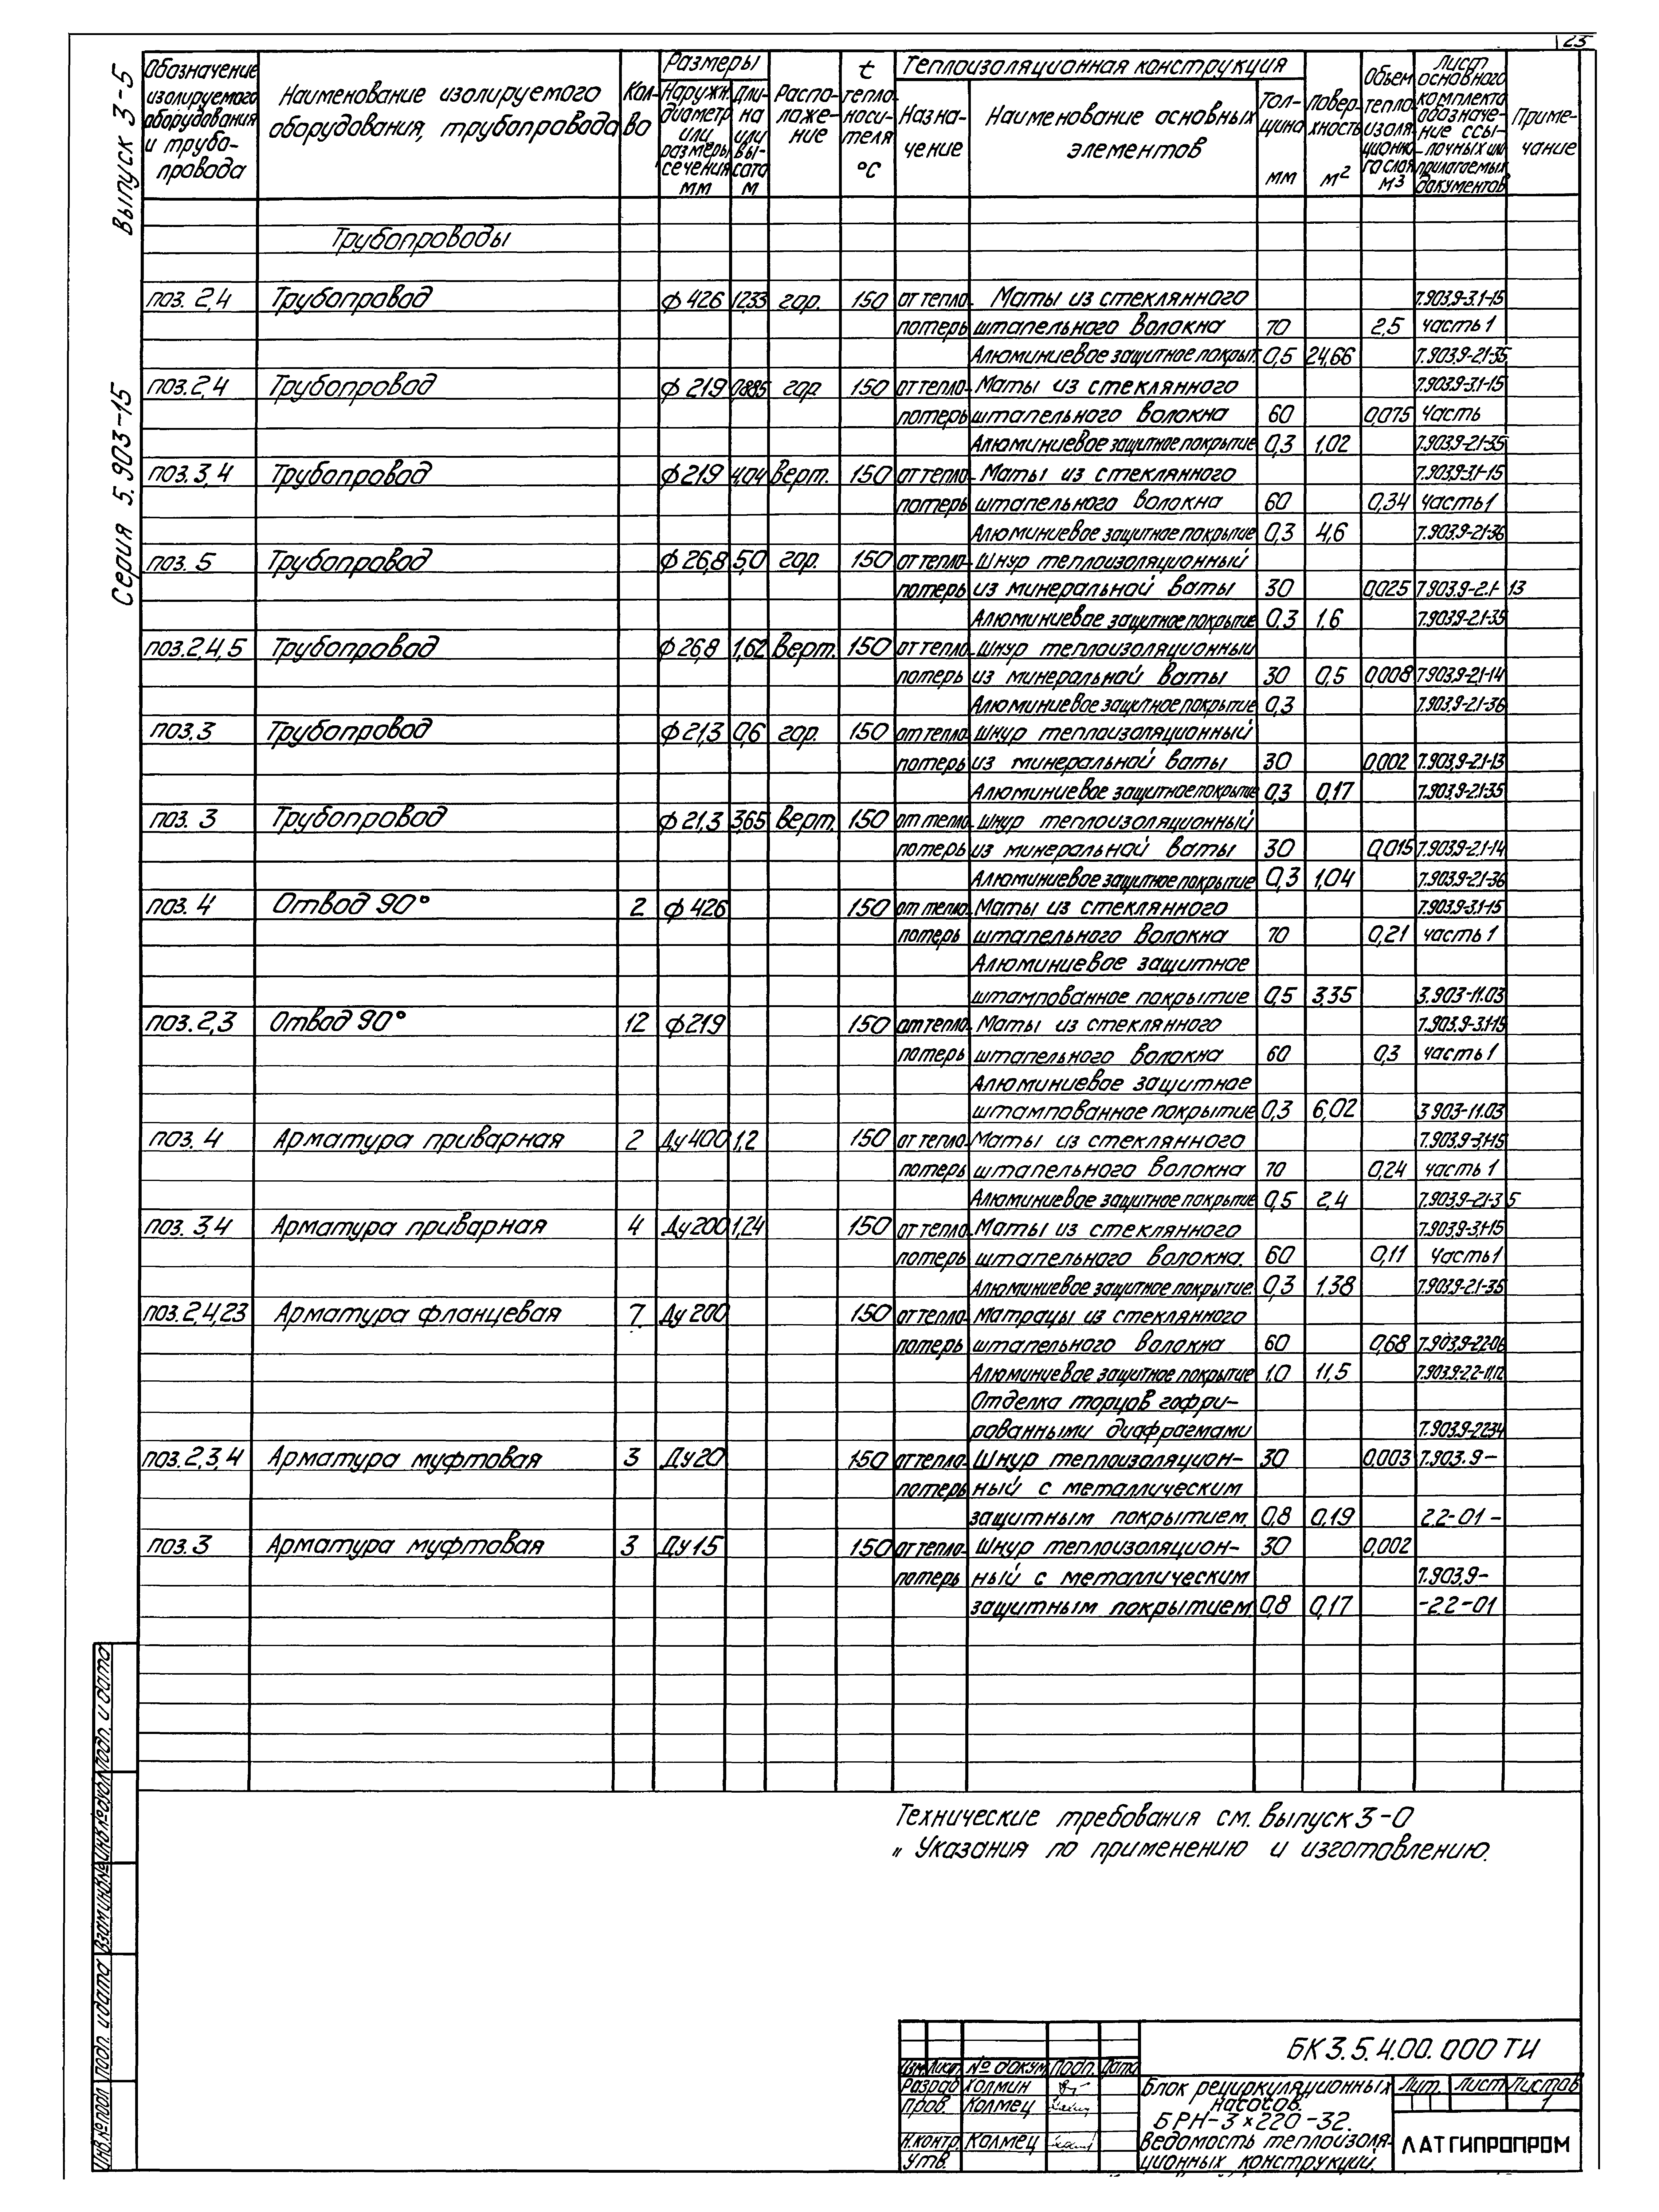 23
Выпуск 3-5
Серия 5.903-15
Обозначение изолируемого оборудования и трубопровода
Наименование изолируемого оборудования, трубопровода
Кол-во
Размеры
Наружн. диаметр или размеры сечения мм
Длина или высота м
Расположение
t теплоносителя °С
Теплоизоляционная конструкция
Назначение
Наименование основных элементов
Толщина мм
Поверхность м2
Объем теплоизоляционного слоя м3
Лист основного комплекта обозначение ссылочных или прилагаемых документов
Примечание
Трубопроводы
поз. 2,4 Трубопровод ф 426 12,33 гор. 150 от тепло- Маты из стеклянного 7.903.9-3.1-15
потерь штапельного волокна 70 2,5 часть 1
Алюминиевое защитное покрыт. 0,5 24,66 7.903.9-2.1-35
поз. 2,4 Трубопровод ф 219 0,885 гор 150 от тепло- Маты из стеклянного 7.903.9-3.1-15
потерь штапельного волокна 60 0,075 часть
Алюминиевое защитное покрытие 0,3 1,02 7.903.9-2.1-35
поз. 3,4 Трубопровод ф 219 4,04 верт. 150 от тепло- Маты из стеклянного 7.903.9-3.1-15
потерь штапельного волокна 60 0,34 часть 1
Алюминиевое защитное покрытие 0,3 4,6 7.903.9-2.1-36
поз. 5 Трубопровод ф 26,8 5,0 гор. 150 от тепло- Шнур теплоизоляционный
потерь из минеральной ваты 30 0,025 7.903.9-2.1-13
Алюминиевое защитное покрытие 0,3 1,6 7.903.9-2.1-35
поз. 2,4,5 Трубопровод ф 26,8 1,62 верт. 150 от тепло- Шнур теплоизоляционный
потерь из минеральной ваты 30 0,5 0,008 7.903.9-2.1-14
Алюминиевое защитное покрытие 0,3 7.903.9-2.1-36
поз. 3 Трубопровод ф 21,3 0,6 гор. 150 от тепло- Шнур теплоизоляционный
потерь из минеральной ваты 30 0,002 7.903.9-2.1-13
Алюминиевое защитное покрытие 0,3 0,17 7.903.9-2.1-35
поз. 3 Трубопровод ф 21,3 3,65 верт. 150 от тепло- Шнур теплоизоляционный
потерь из минеральной ваты 30 0,015 7.903.9-2.1-14
Алюминиевое защитное покрытие 0,3 1,04 7.903.9-2.1-36
поз. 4 Отвод 90° 2 ф 426 150 от тепло- Маты из стеклянного 7.903.9-3.1-15
потерь штапельного волокна 70 0,21 часть 1
Алюминиевое защитное
штампованное покрытие 0,5 3,35 3.903-11.03
поз. 2,3 Отвод 90° 12 ф 219 150 от тепло- Маты из стеклянного 7.903.9-3.1-15
потерь штапельного волокна 60 0,3 часть 1
Алюминиевое защитное
штампованное покрытие 0,3 6,02 3.903-11.03
поз. 4 Арматура приварная 2 Ду 400 1,2 150 от тепло- Маты из стеклянного 7.903.9-3.1-15
потерь штапельного волокна 70 0,24 часть 1
Алюминиевое защитное покрытие 0,5 2,4 7.903.9-2.1-35
поз. 3,4 Арматура приварная 4 Ду 200 1,24 150 от тепло- Маты из стеклянного 7.903.9-3.1-15
потерь штапельного волокна. 60 0,11 часть 1
Алюминиевое защитное покрытие 0,3 1,38 7.903.9-2.1-35
поз. 2,4,23 Арматура фланцевая 7. Ду 200 150 от тепло- Матрацы из стеклянного
потерь штапельного волокна 60 0,68 7.903.9-2.2-06
Алюминиевое защитное покрытие 1.0 11,5 7.903.9-2.2-11,12
Отделка торцов гофри-
рованными диафрагмами 7.903.9-2.2-34
поз. 2,3,4 Арматура муфтовая 3 Ду 20 150 от тепло- Шнур теплоизоляцион- 30 0,003 7.903.9-
потерь ный с металлическим
защитным покрытием. 0,8 0,19 2.2-01-
поз. 3 Арматура муфтовая 3 Ду 15 150 от тепло- Шнур теплоизоляцион- 30 0,002
потерь ный с металлическим 7.903.9-
защитным покрытием 0,8 0,17 -2.2-01
Технические требования см. выпуск 3-0
„ Указания по применению и изготовлению.
Инв.№подл. Подп. и дата Взам.инв.№ Инв.№дубл. Подп. и дата
БК 3.5.4.00.000 ТИ
Изм. Лист № докум. Подп. Дата
Разраб Холмин
Пров. Колмец
Н.контр. Колмец
Утв.
Блок рециркуляционных
насосов.
БРН-3×220-32.
Ведомость теплоизоля-
ционных конструкций.
Лит. Лист Листов
1
ЛАТГИПРОПРОМ